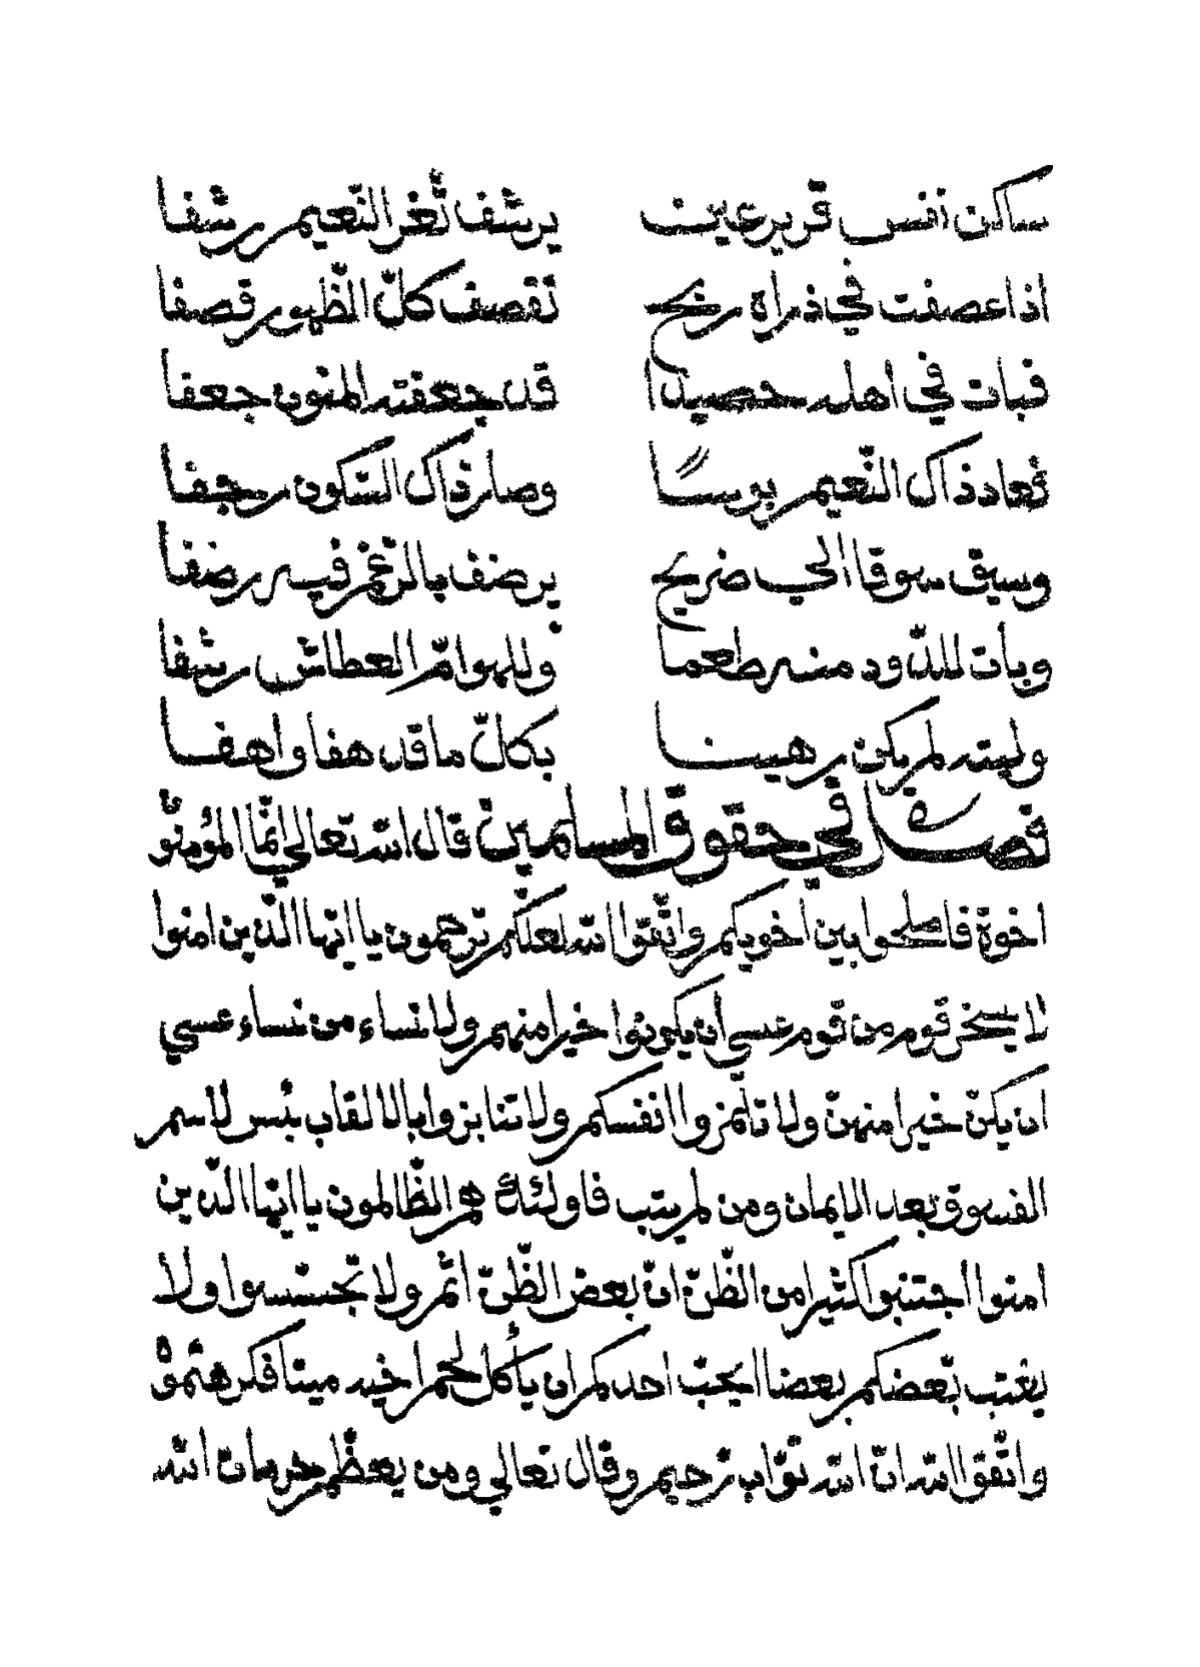 ساكن نفس قرير عين يرشف ثغر النّعيم رشفا
اذا عصفت في ذراه ريح تقصف كلّ الظّهور قصفا
فبات في اهله حصيدا قد جعفته المنون جعفا
فعاد ذاك النّعيم بوسًا وصار ذاك السّكون رجفا
وسيق سوقا الى ضريح يرضف بالرّغم فيه رضفا
وبات للدّود منه طعما وللهوامّ العطاش رشفا
وليته لم يكن رهينا بكلّ ما قد هفا واهفا
فصل في حقوق المسلمين قال الله تعالى انّما المؤمنو
اخوة فاصلحوا بين اخويكم واتّقوا الله لعلّكم ترحمون يا ايّها الّذين امنوا
لا يسخر قوم من قوم عسى ان يكونوا خيرا منهم ولا نساء من نساء عسى
ان يكنّ خيرا منهنّ ولا تلمزوا انفسكم ولا تنابزوا بالالقاب بئس لاسم
الفسوق بعد الايمان ومن لم يتب فاولئك هم الظّالمون يا ايّها الّذين
امنوا اجتنبوا كثيرا من الظّنّ انّ بعض الظّنّ اثم ولا تجسّسوا ولا
يغتب بّعضكم بعضا ايحبّ احدكم ان يأكل لحم اخيه ميتا فكرهتموْ
واتّقوا الله انّ الله توّاب رّحيم وقال تعالى ومن يعظّم حرمات الله